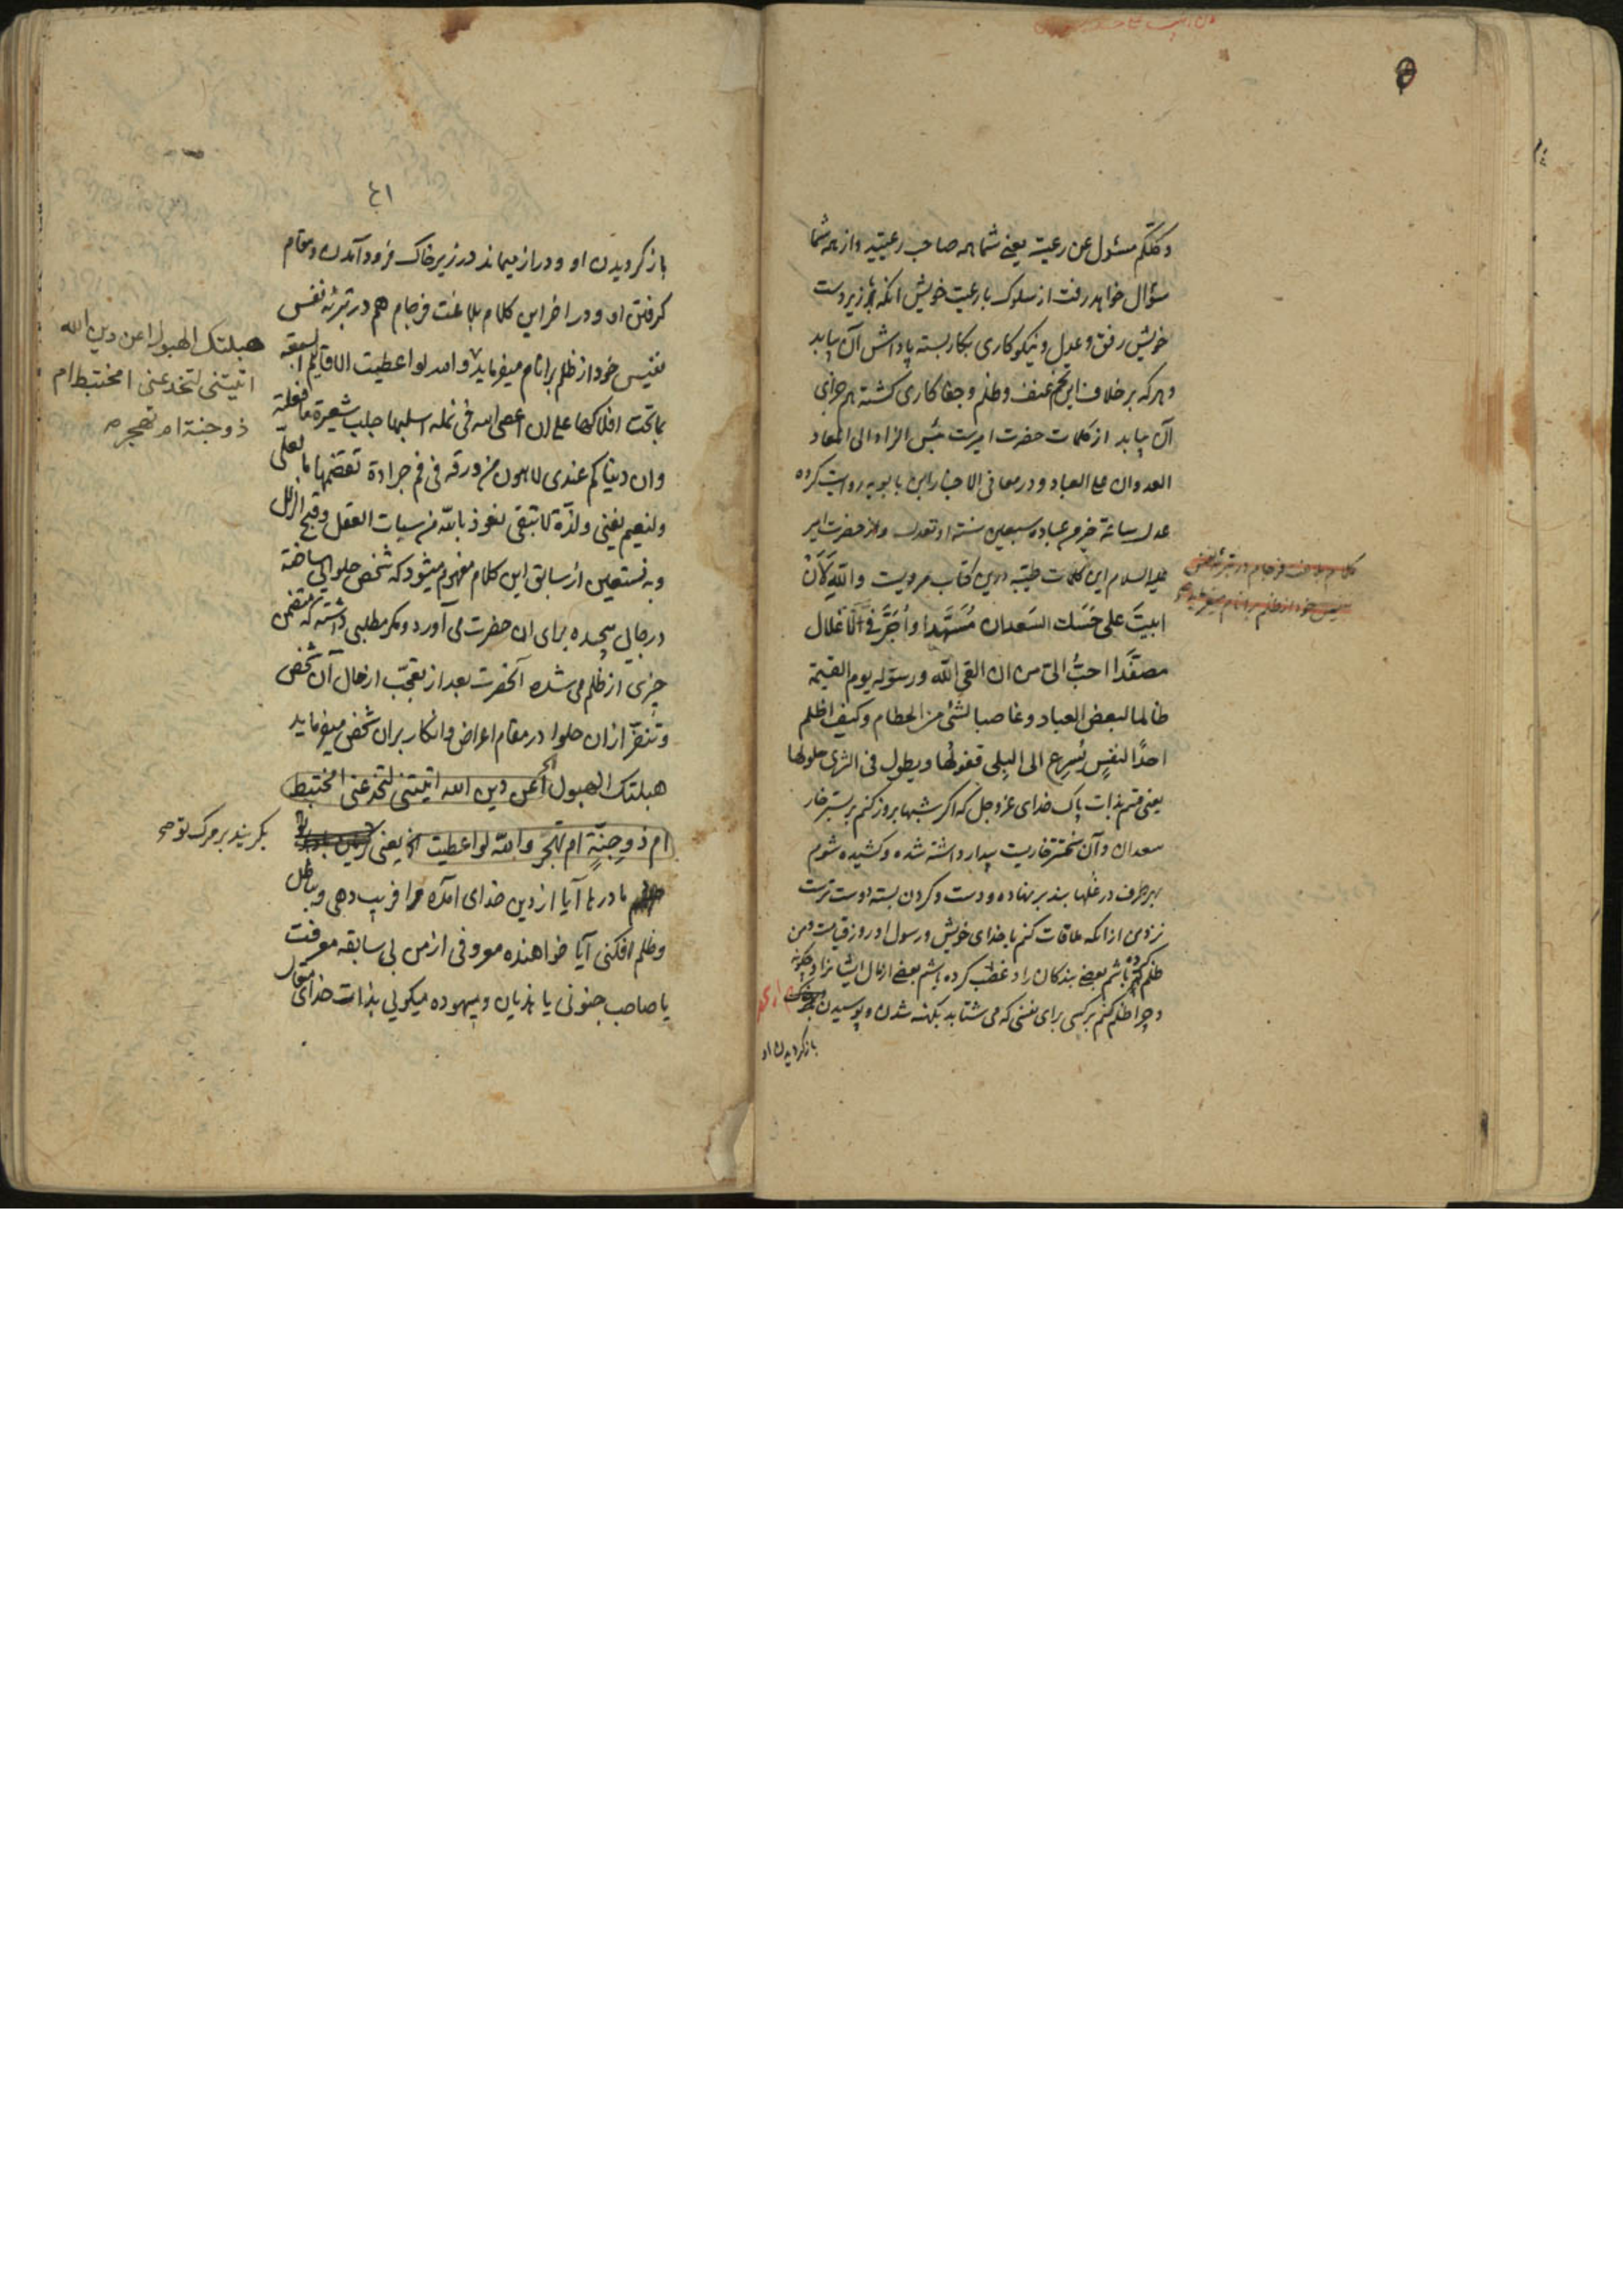 وکلکم مسئول عن رعیته یعنی شما همه صاحب رعیتید و از همه شما
سؤال خواهد رفت از سلوک با رعیت خویش آنکه با زیردست
خویش رفق و عدل و نیکوکاری بکار بسته پاداش آن بیابد
و هرکه بر خلاف این تخم عنف و ظلم و جفاکاری کشته هم جزای
آن بیابد از کلمات حضرت امیرست بئس الزاد الی المعاد
العدوان علی العباد و در معانی الاخبار ابن بابویه روایت کرده
عدل ساعة خیر من عبادة سبعین سنة و از حضرت امیر
علیه السلام این کلمات طیبه درین کتاب مرویست والله لَاَنْ
ابیتَ علی حَسَك السَعدان مُسَهَّدا وأُجَرَّ فی الاَغلال
مصفّدا احبُّ الیّ من ان القی الله ورسوله یوم القیمة
ظالما لبعض العباد وغاصبا لشئ من الحطام وکیف اظلم
احدًا لنفسٍ یُسرِع الی البِلی قفولُها ویطول فی الثری حلولها
یعنی قسم بذات پاک خدای عز و جل که اگر شبها بروز کنم بر بستر خار
سعدان و آن سخت‌تر خاریست بیدار داشته شده و کشیده شوم
بهر طرف در غلها بند بر نهاده و دست و کردن بسته دوست ترست
نزد من از انکه ملاقات کنم با خدای خویش و رسول او روز قیامت و من
ظلم کرده باشم بعضی بندکان را و غصب کرده باشم بعضی از مال ایشانرا و چکونه
و چرا ظلم کنم بر کسی برای نفسی که می شتابد بکهنه شدن و پوسیدن
بازکردیدن او
کلام بلاغت فرجام در تبرئه نفس
نفیس خود از ظلم بر انام میفرماید
۴۱
بازکردیدن او و دراز میماند در زیر خاک فرود آمدن و مقام
کرفتن او و در اخر این کلام بلاغت فرجام هم در تبرئه نفس
نفیس خود از ظلم بر انام میفرماید والله لو اعطیت الاقالیم السبعه
بما تحت افلاکها علی ان اعصی الله فی نملة اسلبها جلب شعیرة ما فعلته
وان دنیاکم عندی لاهون من ورقة فی فم جرادة تقضمها ما لعلی
ولنعیم یفنی ولذّة لا تبقی نعوذ بالله من سبات العقل وقبح الزلل
وبه نستعین از سابق این کلام مفهوم میشود که شخصی حلوائی ساخته
در جای پیچیده برای ان حضرت می آورد و مکر مطلبی داشته که متضمن
چیزی از ظلم می شده آنحضرت بعد از تعجّب از حال آن شخص
و تنفّر ازان حلوا در مقام اعراض و انکار بران شخص میفرماید
هبلتك الهبول أعن دین الله اتیتنی لتخدعنی امختبط
ام ذو جِنَّةٍ ام تهجُر والله لو اعطیت الخ یعنی
مادرها آیا از دین خدای آمده مرا فریب دهی و بباطل
و ظلم افکنی آیا خواهنده معروفی از من بی سابقه معرفت
یا صاحب جنونی یا هذیان و بیهوده میکوئی بذات خدای متعال
هبلتك الهبول اعن دین الله
اتیتنی لتخدعنی امختبط ام
ذو جنة ام تهجر صح
بکریند بر مرک تو صح